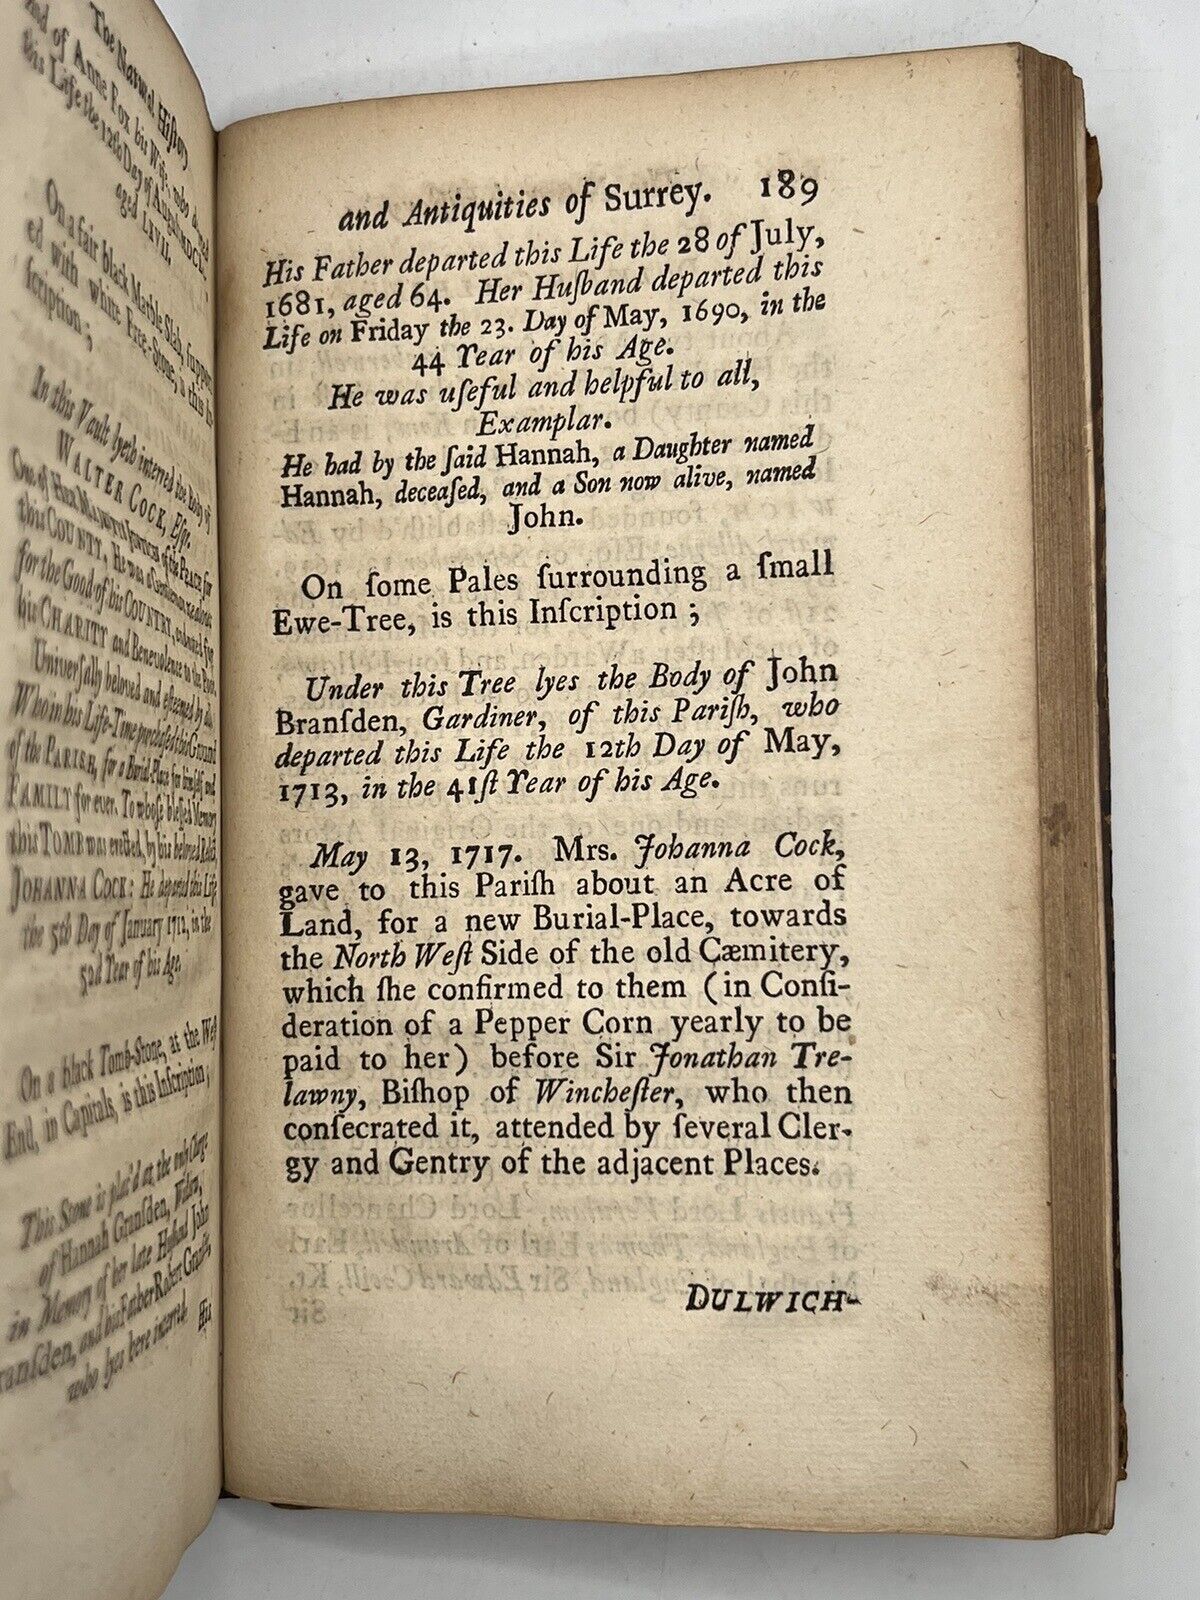 The Natural History
and of Anne Fox his Wife, who departed
this Life the 12th Day of August
aged LXVII.
On a fair black Marble Slab, support-
ed with white Free-Stone, is this In-
ſcription ;
In this Vault lyeth interred the Body of
WALTER COCK, Eſq.
One of Her MAJESTY'S JUSTICES of the PEACE for
this COUNTY. He was a Gentleman
for the Good of his COUNTRY,
his CHARITY and Benevolence to the Poor,
Univerſally beloved and eſteemed by all.
Who in his Life-Time purchaſed this Ground
of the PARISH, for a Burial-Place for himſelf and
FAMILY for ever. To whoſe bleſſed Memory
this TOMB was erected, by his beloved Relict,
JOHANNA COCK: He departed this Life
the 5th Day of January 1712, in the
52d Year of his Age.
On a black Tomb-Stone, at the Weſt
End, in Capitals, is this Inſcription ;
This Stone is plac'd at the only Charge
of Hannah Granſden, Widow,
in Memory of her late Husband John
Granſden, and his Father Robert Granſden,
who lyes here interred
His
and Antiquities of Surrey. 189
His Father departed this Life the 28 of July,
1681, aged 64. Her Huſband departed this
Life on Friday the 23. Day of May, 1690, in the
44 Year of his Age.
He was uſeful and helpful to all,
Examplar.
He had by the ſaid Hannah, a Daughter named
Hannah, deceaſed, and a Son now alive, named
John.
On ſome Pales ſurrounding a ſmall
Ewe-Tree, is this Inſcription ;
Under this Tree lyes the Body of John
Branſden, Gardiner, of this Pariſh, who
departed this Life the 12th Day of May,
1713, in the 41ſt Year of his Age.
May 13, 1717. Mrs. Johanna Cock,
gave to this Pariſh about an Acre of
Land, for a new Burial-Place, towards
the North Weſt Side of the old Cæmitery,
which ſhe confirmed to them (in Conſi-
deration of a Pepper Corn yearly to be
paid to her) before Sir Jonathan Tre-
lawny, Biſhop of Wincheſter, who then
conſecrated it, attended by ſeveral Cler-
gy and Gentry of the adjacent Places.
DULWICH-